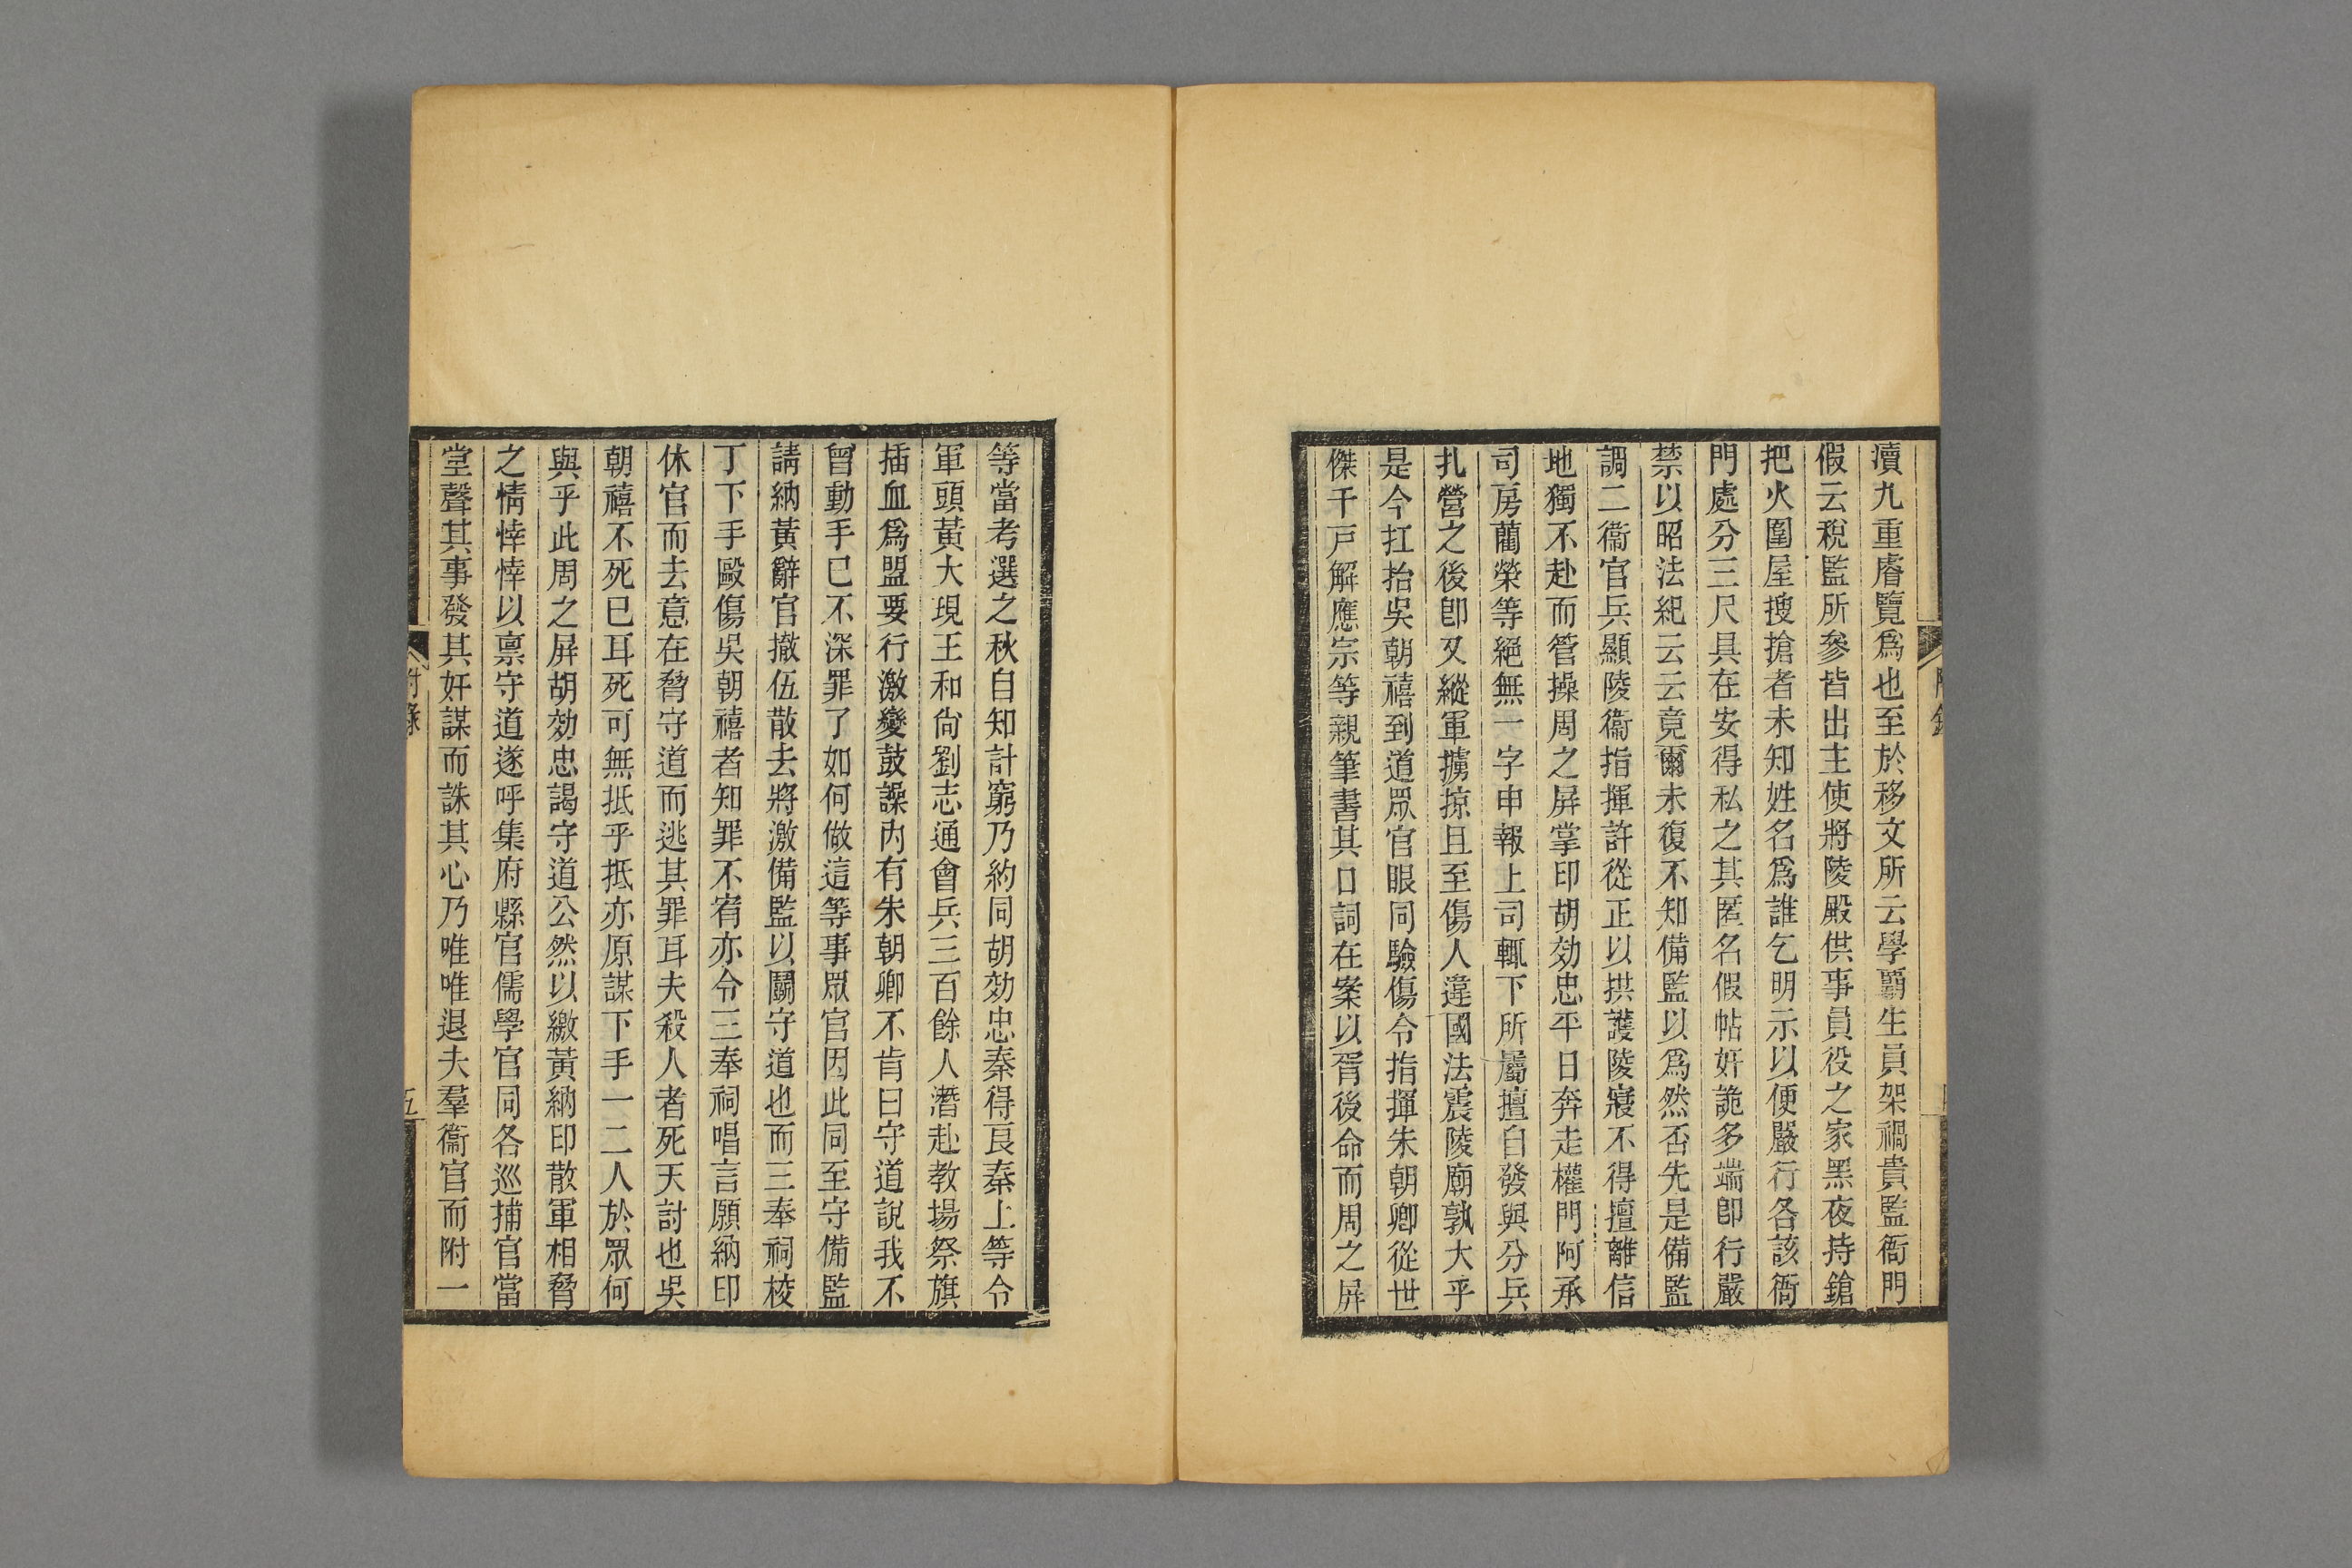 瀆九重睿覽爲也至於移文所云學覇生員架禍貴監衙門
假云稅監所參皆出主使將陵殿供事員役之家黑夜持鎗
把火圍屋搜搶者未知姓名爲誰乞明示以便嚴行各該衙
門處分三尺具在安得私之其匿名假帖奸詭多端卽行嚴
禁以昭法紀云云竟爾未復不知備監以爲然否先是備監
調二衞官兵顯陵衞指揮許從正以拱護陵寢不得擅離信
地獨不赴而管操周之屏掌印胡効忠平日奔走權門阿承
司房藺榮等絕無一字申報上司輒下所屬擅自發與分兵
扎營之後卽又縱軍擄掠且至傷人違國法震陵廟孰大乎
是今扛抬吳朝禧到道眾官眼同驗傷令指揮朱朝卿從世
傑千戸解應宗等親筆書其口詞在案以胥後命而周之屏
等當考選之秋自知計窮乃約同胡効忠秦得艮秦上等令
軍頭黃大現王和尙劉志通會兵三百餘人潛赴教場祭旗
插血爲盟要行激變鼓譟內有朱朝卿不肯曰守道說我不
曾動手已不深罪了如何做這等事眾官因此同至守備監
請納黃辭官撤伍散去將激備監以鬭守道也而三奉祠校
丁下手毆傷吳朝禧者知罪不宥亦令三奉祠唱言願納印
休官而去意在脅守道而逃其罪耳夫殺人者死天討也吳
朝禧不死已耳死可無抵乎抵亦原謀下手一二人於眾何
與乎此周之屏胡効忠謁守道公然以繳黃納印散軍相脅
之情悻悻以禀守道遂呼集府縣官儒學官同各巡捕官當
堂聲其事發其奸謀而誅其心乃唯唯退夫羣衞官而附一
附錄
五